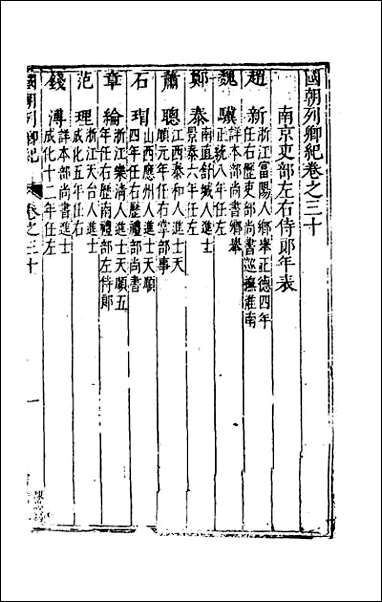 國朝列卿紀卷之三十
南京吏部左右侍郎年表
趙新
浙江富陽人鄉舉正德四年
任右歷吏部尚書巡撫淮南
魏驥
詳本部尚書鄉舉
正統八年任左
鄭泰
南直舒城人進士
景泰六年任左
蕭聰
江西泰和人進士天
順元年任右掌部事
石瑁
山西應州人進士天順
四年任右歷禮部尚書
章綸
浙江樂清人進士天順五
年任右歷南禮部左侍郎
范理
浙江天台人進士
成化五年任右
錢溥
詳本部尚書進士
成化十二年任左
國朝列卿紀
卷之三十
一